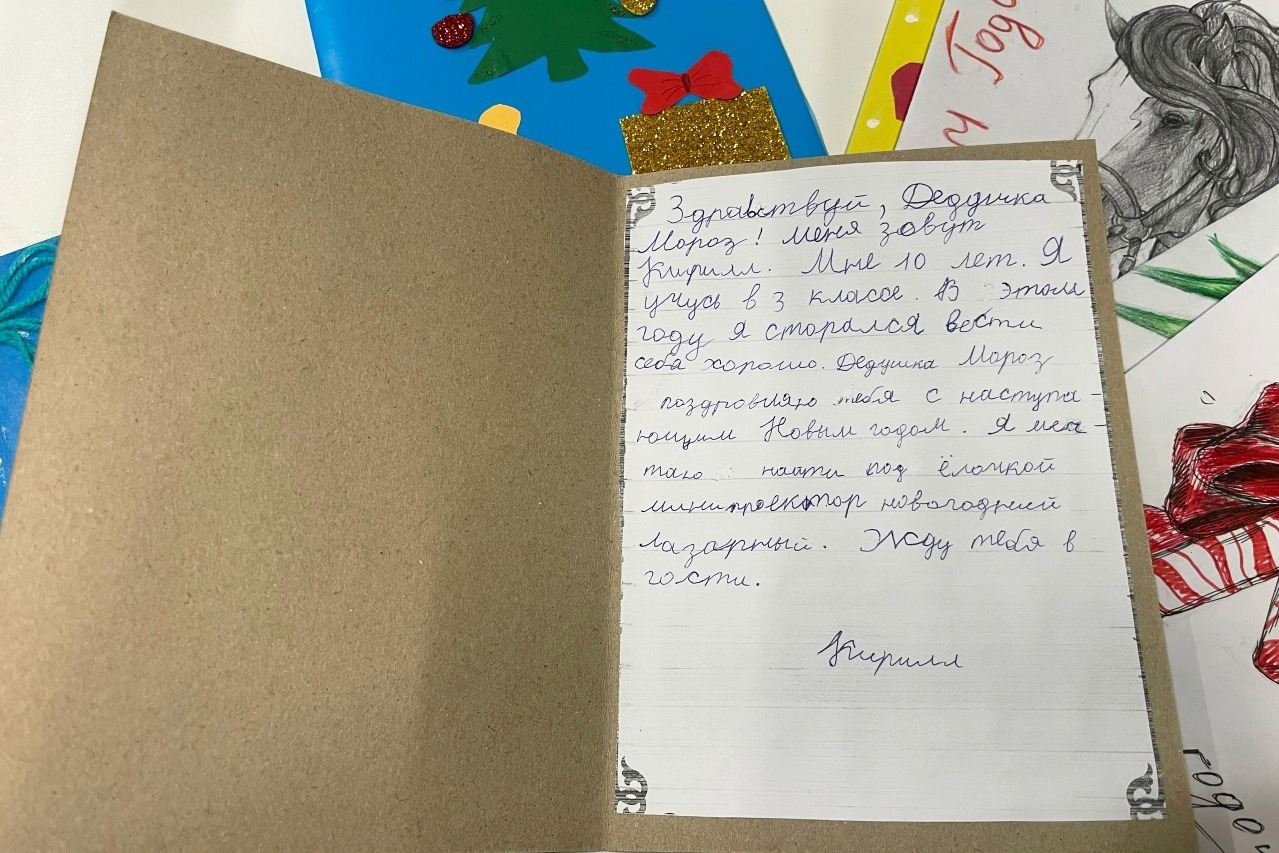 у Года
Здравствуй, Дедушка
Мороз! Меня зовут
Кирилл. Мне 10 лет. Я
учусь в 3 класе. В этом
году я сторался вести
себя хорошо. Дедушка Мороз
поздровляю тебя с наступа-
ющим Новым годом. Я меч-
таю найти под ёлочкой
минипроектор новогодний
лазарный. Жду тебя в
гости.
Кирилл